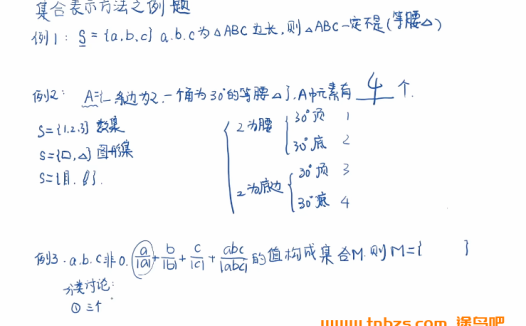 集合表示方法之例题
例1: S={a,b,c} a.b.c为△ABC边长,则△ABC一定不是(等腰△)
例2: A={一条边为2.一个角为30°的等腰△},A中元素有 4 个.
S={1.2.3} 数集
S={□,△} 图形集
S={
2为腰
30°顶 1
30°底 2
2为底边
30°顶 3
30°底 4
例3.a.b.c非0. a/|a|+b/|b|+c/|c|+abc/|abc|的值构成集合M.则M={ }
分类讨论:
① 三个
www.tnbzs.com